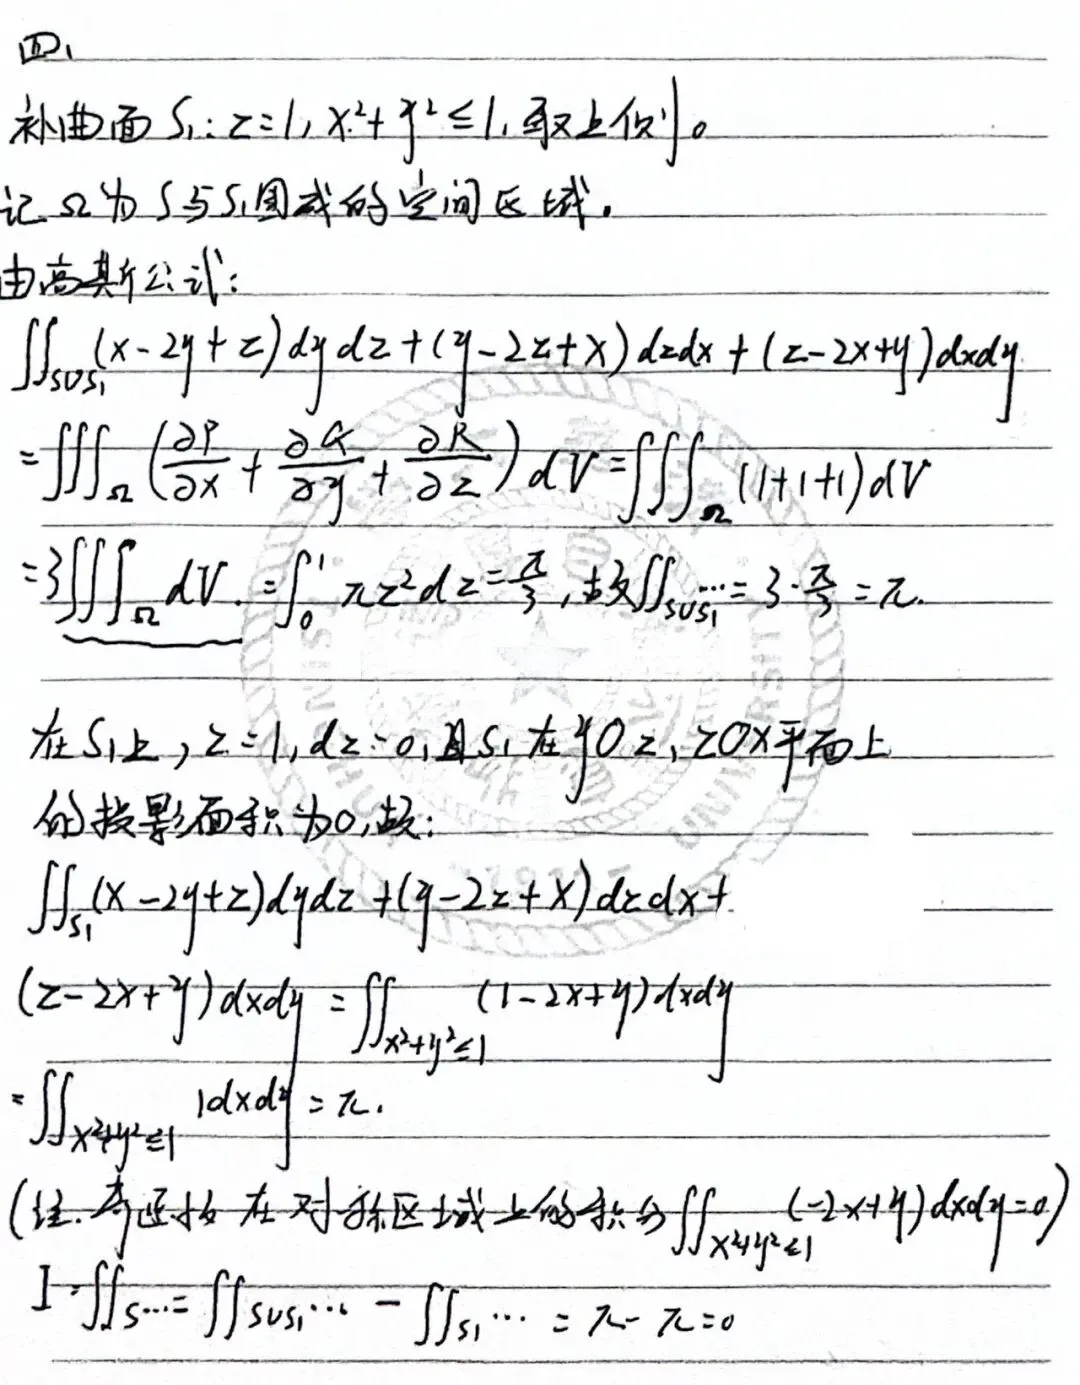 四、
补曲面 S₁: z=1, x²+y²≤1, 取上侧。
记 Ω为 S与S₁围成的空间区域.
由高斯公式:
∬_{S∪S₁}(x-2y+z)dydz+(y-2z+x)dzdx+(z-2x+y)dxdy
=∭_Ω(∂P/∂x+∂Q/∂y+∂R/∂z)dV=∭_Ω(1+1+1)dV
=3∭_Ω dV.=∫₀¹πz²dz=π/3, 故∬_{S∪S₁}…=3·π/3=π.
在S₁上, z=1, dz=0, 且S₁在yOz, zOx平面上
的投影面积为0, 故:
∬_{S₁}(x-2y+z)dydz+(y-2z+x)dzdx+
(z-2x+y)dxdy=∬_{x²+y²≤1}(1-2x+y)dxdy
=∬_{x²+y²≤1}1dxdy=π.
(注.奇函数在对称区域上的积分∬_{x²+y²≤1}(-2x+y)dxdy=0)
I=∬_S…=∬_{S∪S₁}…-∬_{S₁}…=π-π=0
UNIVERSITY